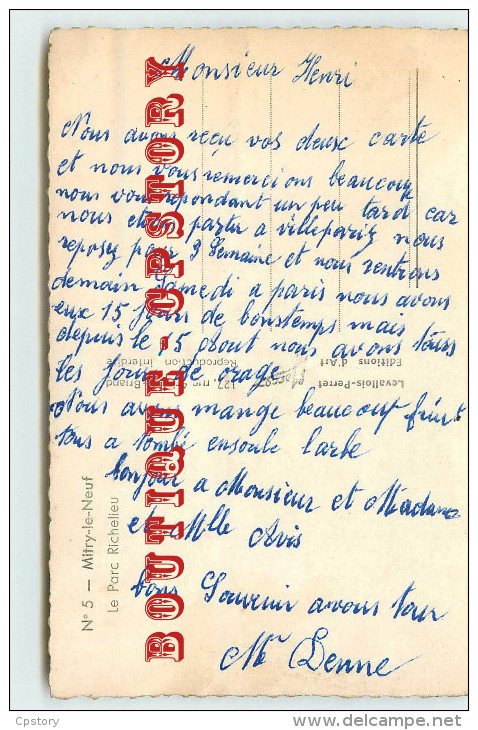 Monsieur Henri
Nous avons reçu vos deux carte
et nous vous remercions beaucoup
nous vous repondant un peu tard car
nous etion partir a villepariz nous
reposez pour 3 Semaine et nous rentrons
demain Samedi a paris nous avons
eux 15 jours de bonstemps mais
depuis le 15 aout nous avons tous
les jour de orage
Nous avons mange beaucoup
tous a tombé 
bonjour a Monsieur et Madame
et Mlle Avis
bons Souvenir avous tous
Mr Denne
N° 5 — Mitry-le-Neuf
Le Parc Richelieu
Levallois-Perret
Editions d'Art
127, rue Briand
Reproduction Interdite
BOUTIQUE-CPSTORY
Cpstory
delcampe.net